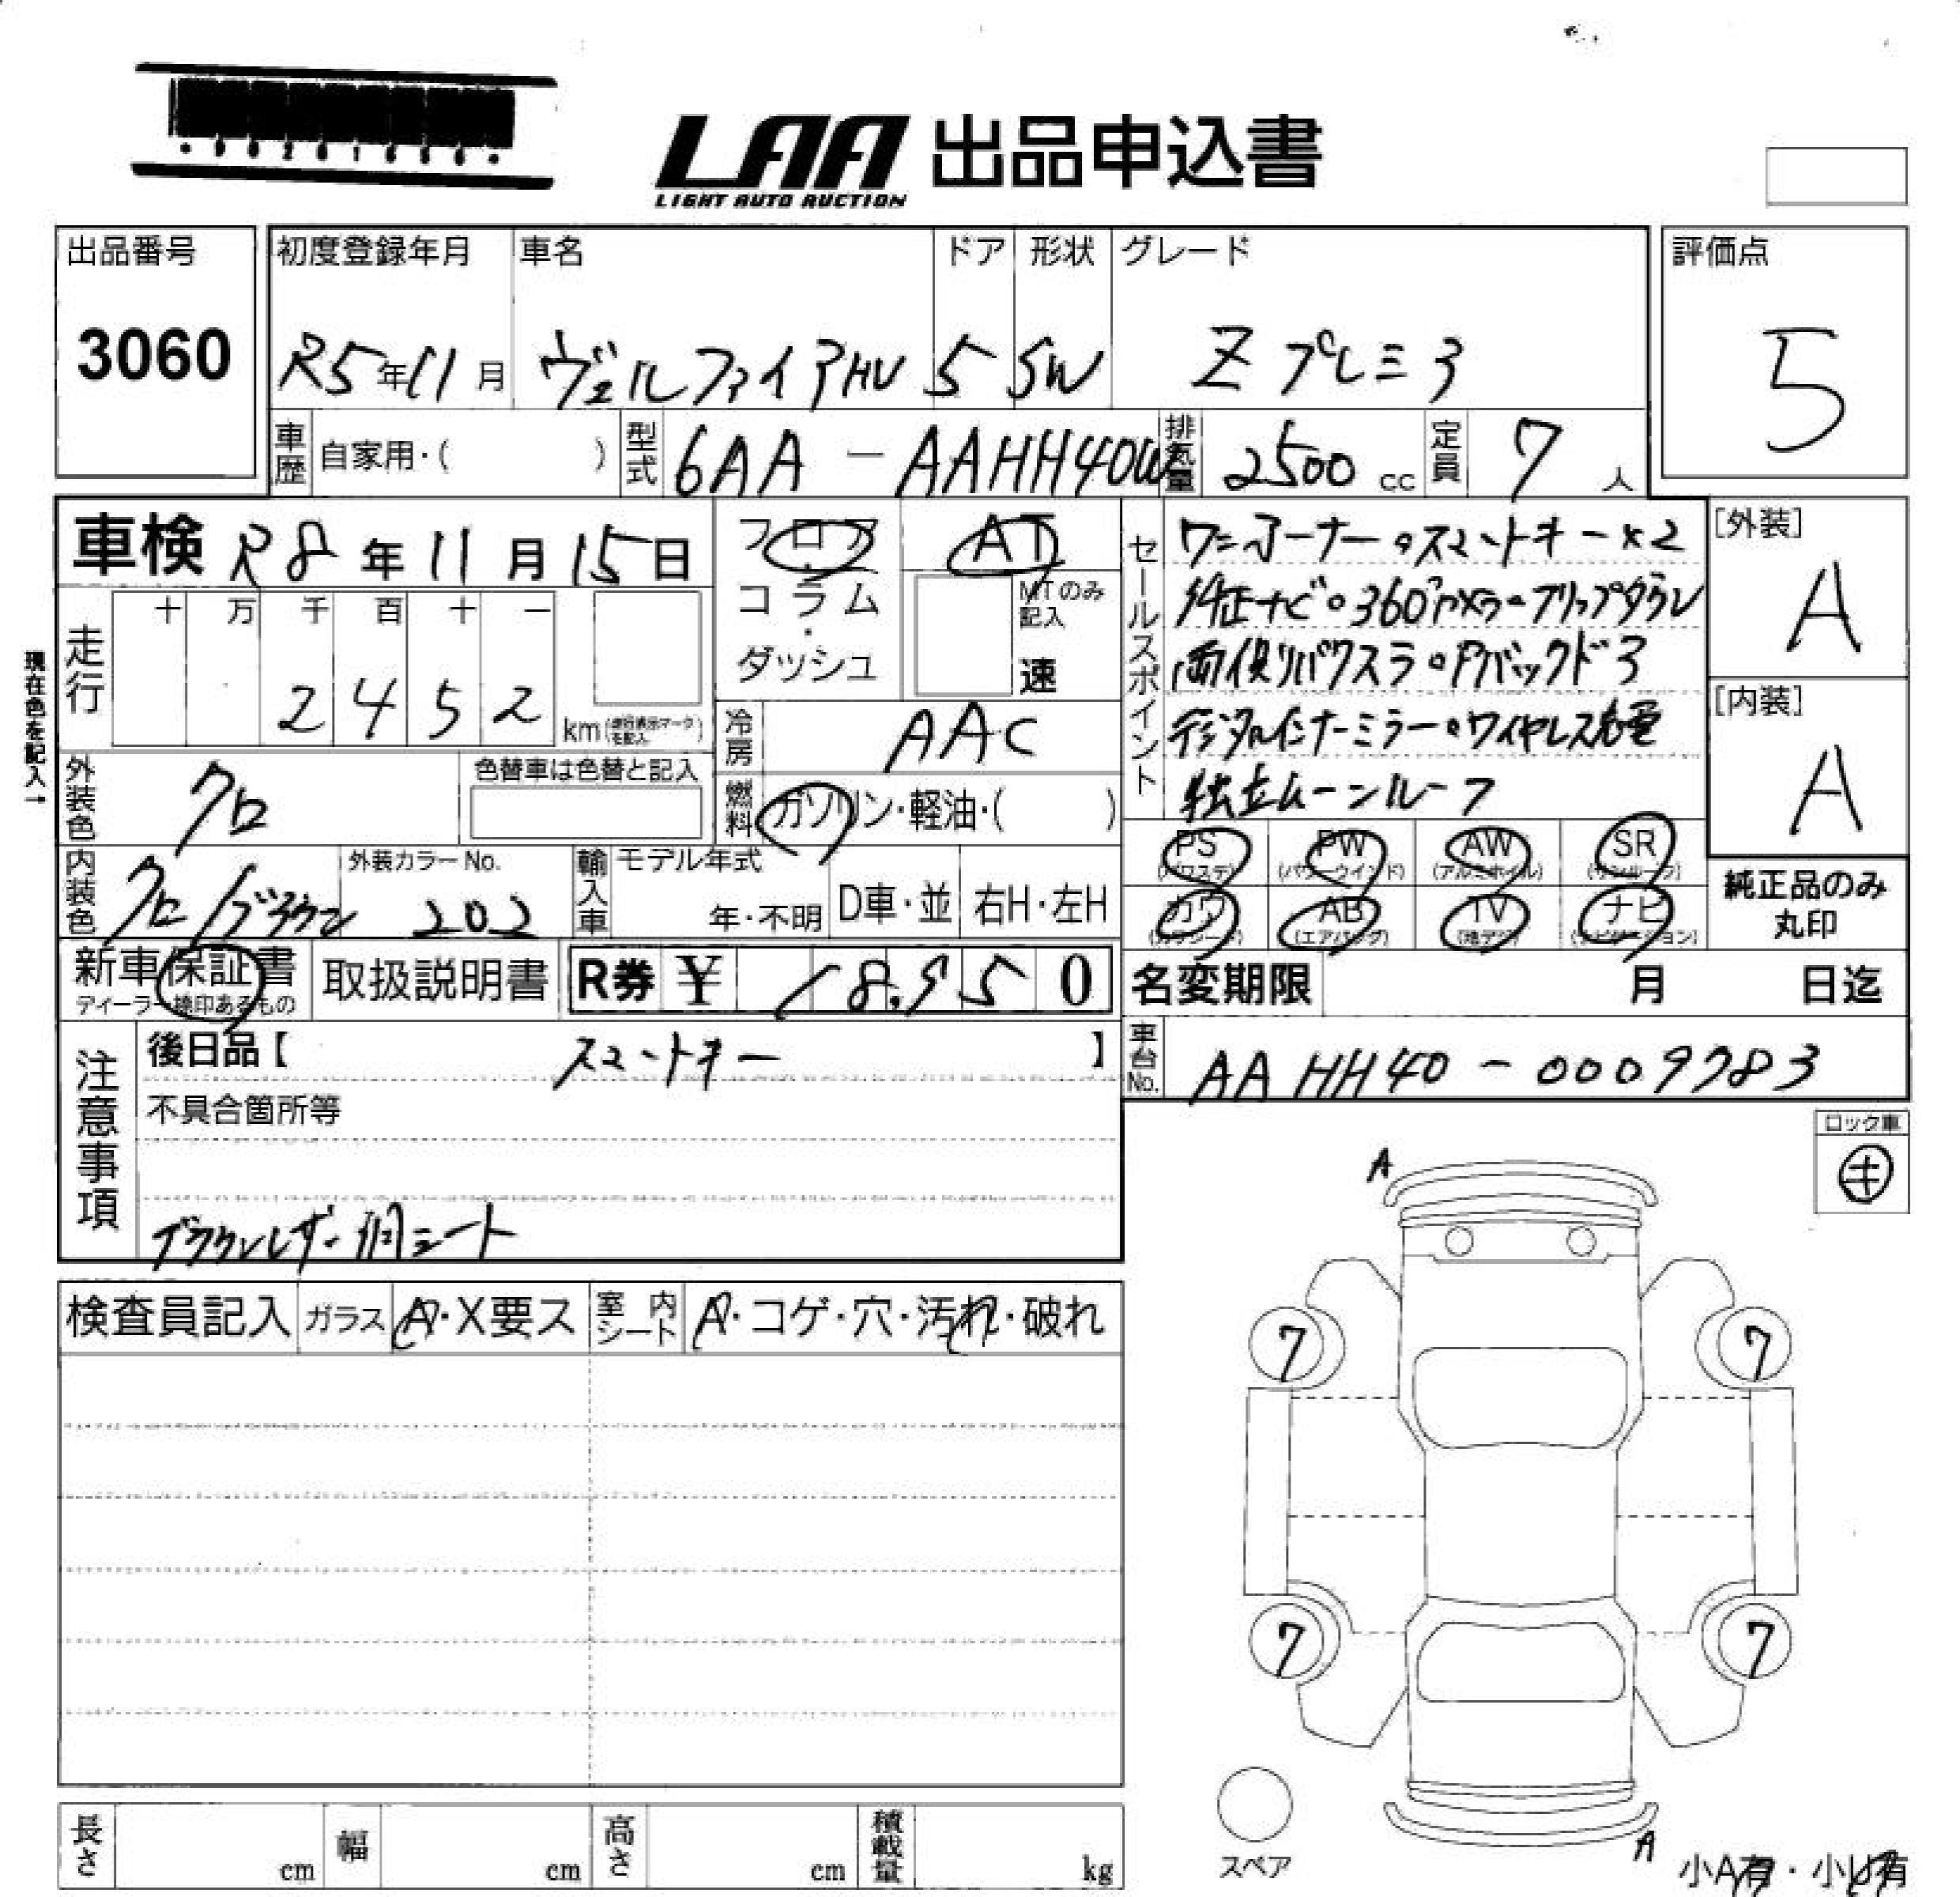 LAA 出品申込書
LIGHT AUTO AUCTION
出品番号
3060
初度登録年月 車名 ドア 形状 グレード
R5年11月 ヴェルファイアHV 5 SW Zプレミア
評価点
5
車歴 自家用・( ) 型式 6AA-AAHH40W 排気量 2500cc 定員 7人
車検 R8年11月15日
フロア
コラム
・
ダッシュ
AT
MTのみ記入
速
現在色を記入→
走行 十 万 千 百 十 一
2 4 5 2 km(走行表示マークを記入)
冷房 AAC
外装色 クロ 色替車は色替と記入
燃料 ガソリン・軽油・( )
内装色 クロ/ブラウン 外装カラーNo. 202
輸入車 モデル年式 年・不明 D車・並 右H・左H
新車保証書 取扱説明書 R券 ¥ 18,950
ディーラー捺印あるもの
セールスポイント
ワンオーナー。スマートキー×2
純正ナビ。360°カメラ。フリップダウン
両側リパワスラ。Pバックドア
デジタルインナーミラー。ワイヤレス充電
独立ムーンルーフ
[外装]
A
[内装]
A
PS PW AW SR
(パワステ) (パワーウインド) (アルミホイル) (サンルーフ)
カワ AB TV ナビ
(カワシート) (エアバッグ) (地デジ) (ナビゲーション)
純正品のみ
丸印
名変期限 月 日迄
車台No. AAHH40-0009783
注意事項
後日品【 スマートキー 】
不具合箇所等
ブラウンレザー調シート
ロック車
キ
検査員記入 ガラス A・X要ス 室内シート A・コゲ・穴・汚れ・破れ
A
7 7
7 7
A
スペア
小A有・小U有
長さ cm 幅 cm 高さ cm 積載量 kg